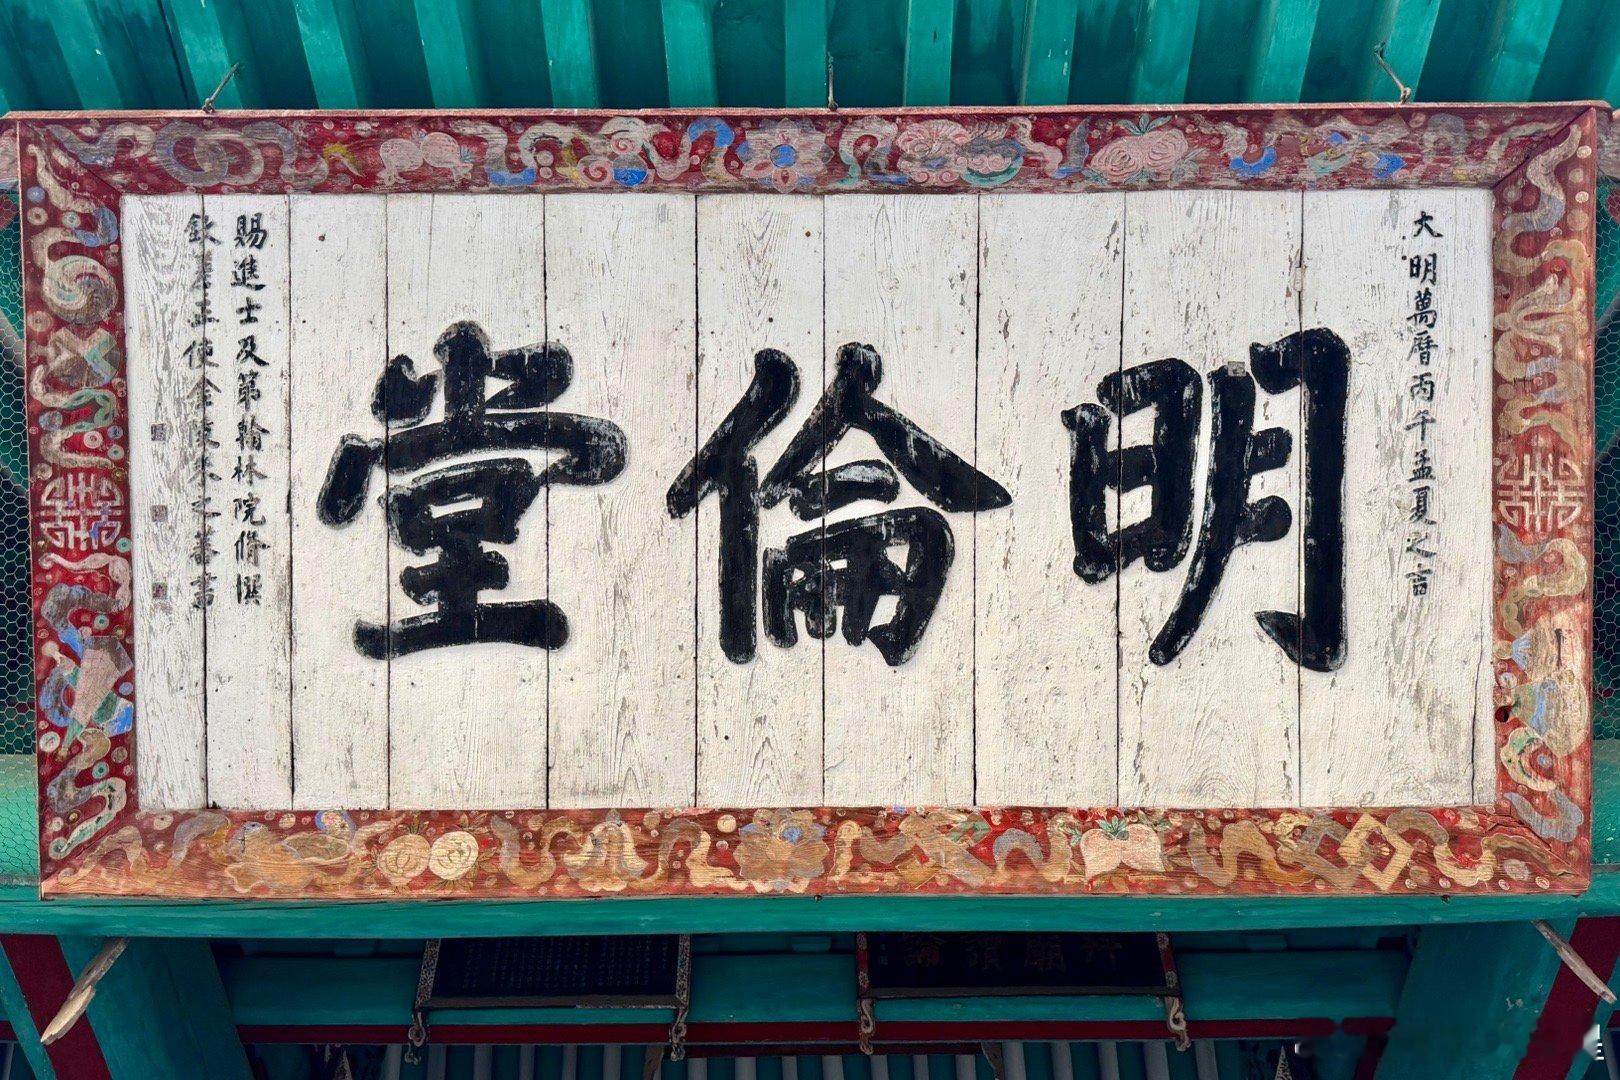 大明萬曆丙午孟夏之吉
明倫堂
賜進士及第翰林院脩撰
欽差正使金陵朱之蕃書